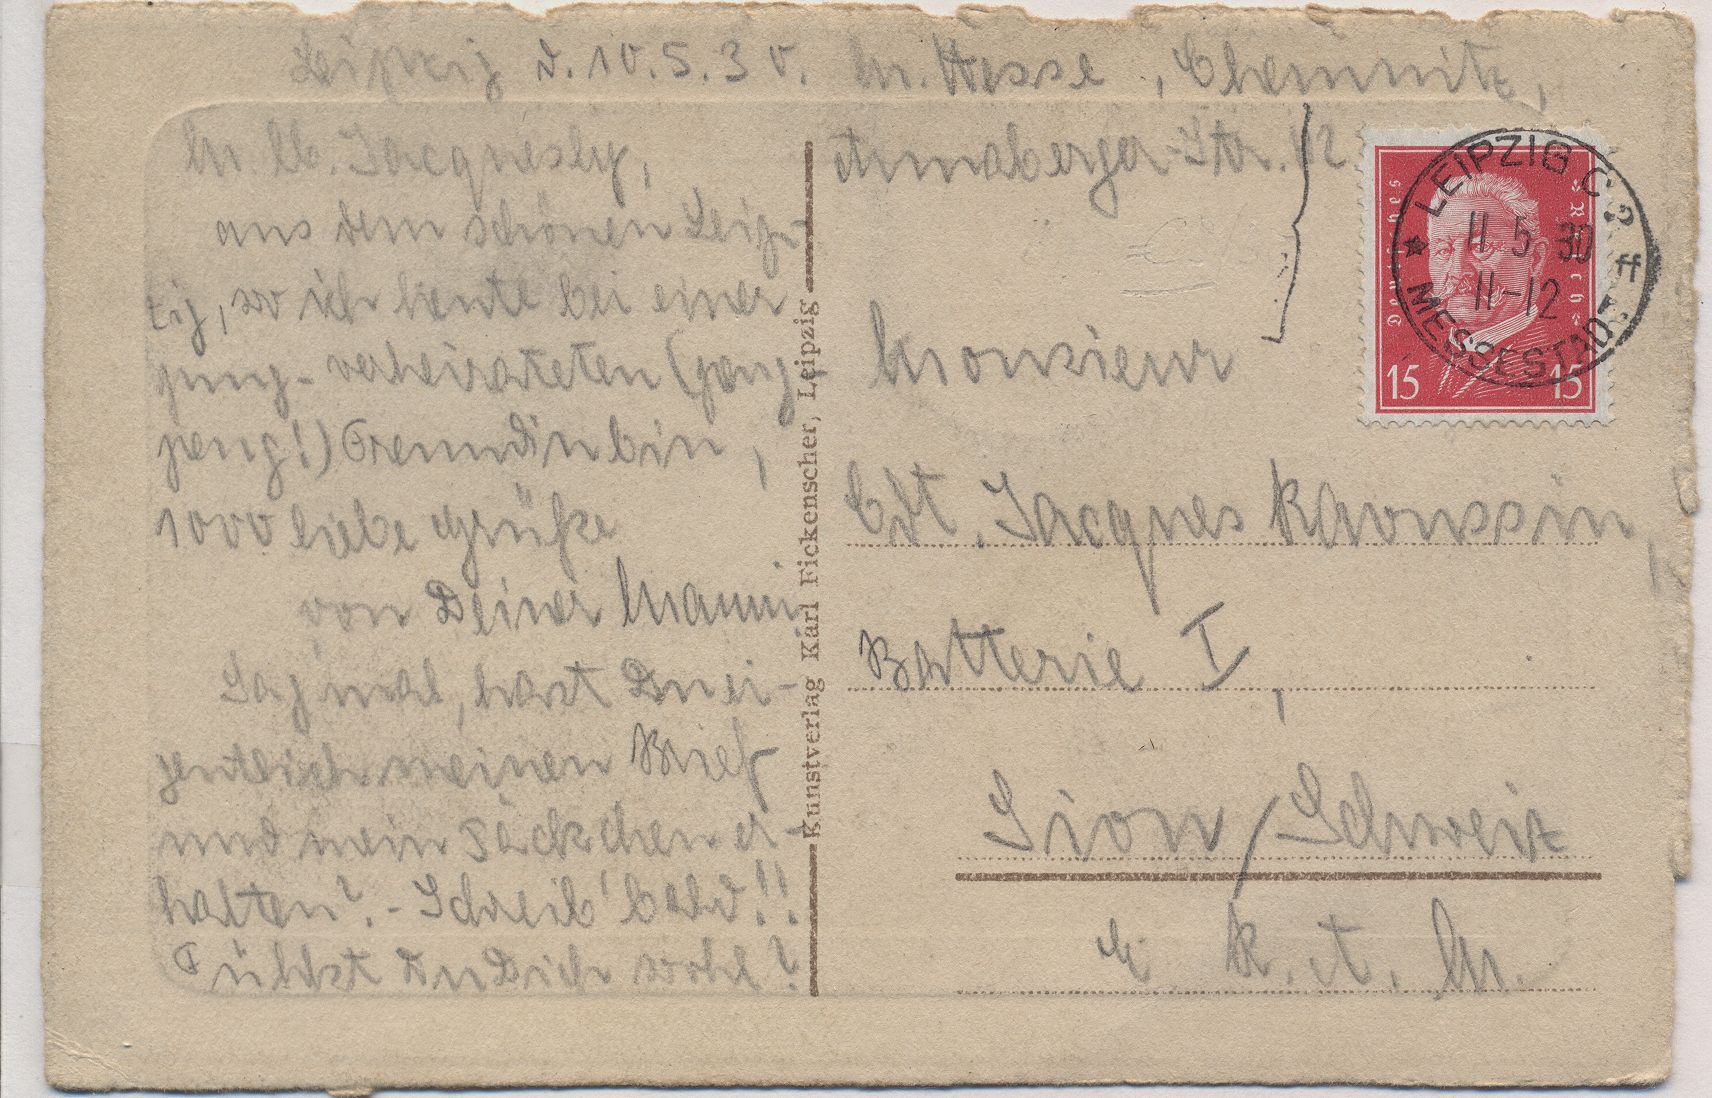 Leipzig d. 10.5.30.
M. Hesse, Chemnitz,
Annaberger-Str. 12
M. lb. Jacquesly,
aus dem schönen Leip-
zig, wo ich heute bei einer
jung-verheirateten (peng-
peng!) Freundin bin,
1000 liebe Grüße
von Deiner Mauni
Sag' mal, hast Du ei-
gentlich meinen Brief
und mein Säckchen er-
halten? - Schreib' bald!!
Fühlst Du Dich wohl?
Kunstverlag Karl Fickenscher, Leipzig
Monsieur
Cdt. Jacques Ravussin,
Batterie I,
Sion/Schweiz
E. R. A. M.
Deutsches Reich
15 15
LEIPZIG C 2
11 5 30
11-12
ff
MESSESTADT